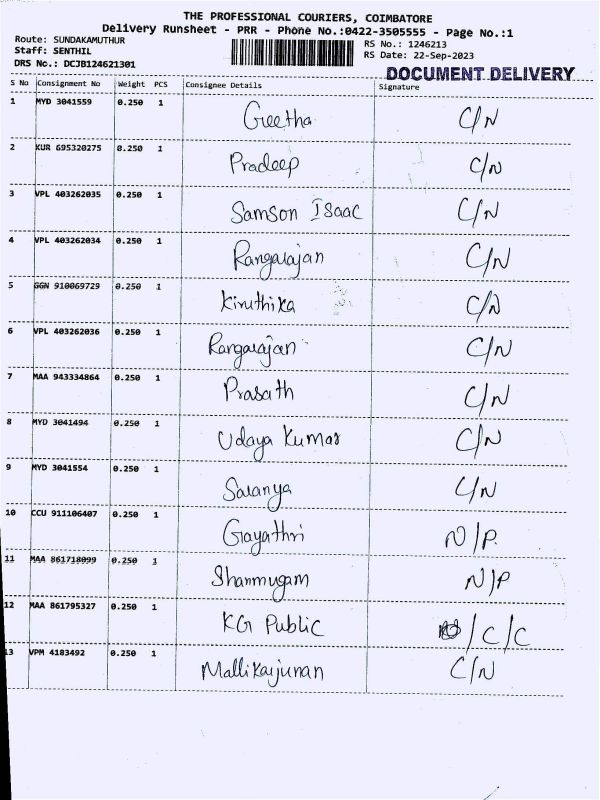 THE PROFESSIONAL COURIERS, COIMBATORE
Delivery Runsheet - PRR - Phone No.:0422-3505555 - Page No.:1
Route: SUNDAKAMUTHUR
Staff: SENTHIL
DRS No.: DCJB124621301
RS No.: 1246213
RS Date: 22-Sep-2023
DOCUMENT DELIVERY
S No Consignment No Weight PCS Consignee Details Signature
1 MYD 3041559 0.250 1 Geetha C/N
2 KUR 695320275 0.250 1 Pradeep C/N
3 VPL 403262035 0.250 1 Samson Isaac C/N
4 VPL 403262034 0.250 1 Rangarajan C/N
5 GGN 910069729 0.250 1 Kiruthika C/N
6 VPL 403262036 0.250 1 Rangarajan C/N
7 MAA 943334864 0.250 1 Prasath C/N
8 MYD 3041494 0.250 1 Udaya Kumar C/N
9 MYD 3041554 0.250 1 Saranya C/N
10 CCU 911106407 0.250 1 Gayathri N/P
11 MAA 861718099 0.250 1 Shanmugam N/P
12 MAA 861795327 0.250 1 KG Public /C/C
13 VPM 4183492 0.250 1 Mallikarjunan C/N